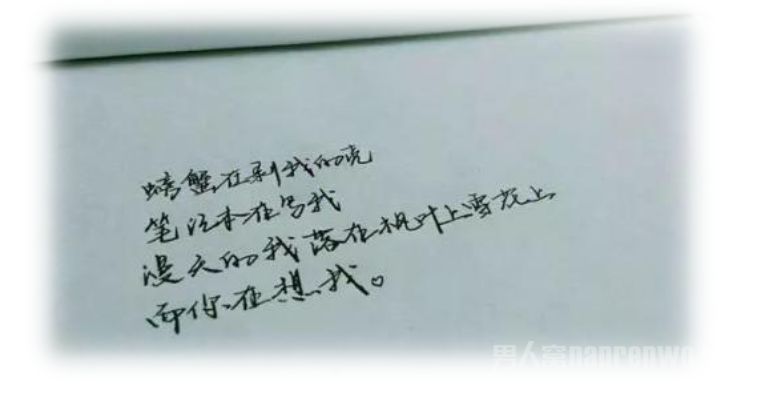 螃蟹在剥我的壳
笔记本在写我
漫天的我落在枫叶上雪花上
而你在想我。
男人窝nanrenwo